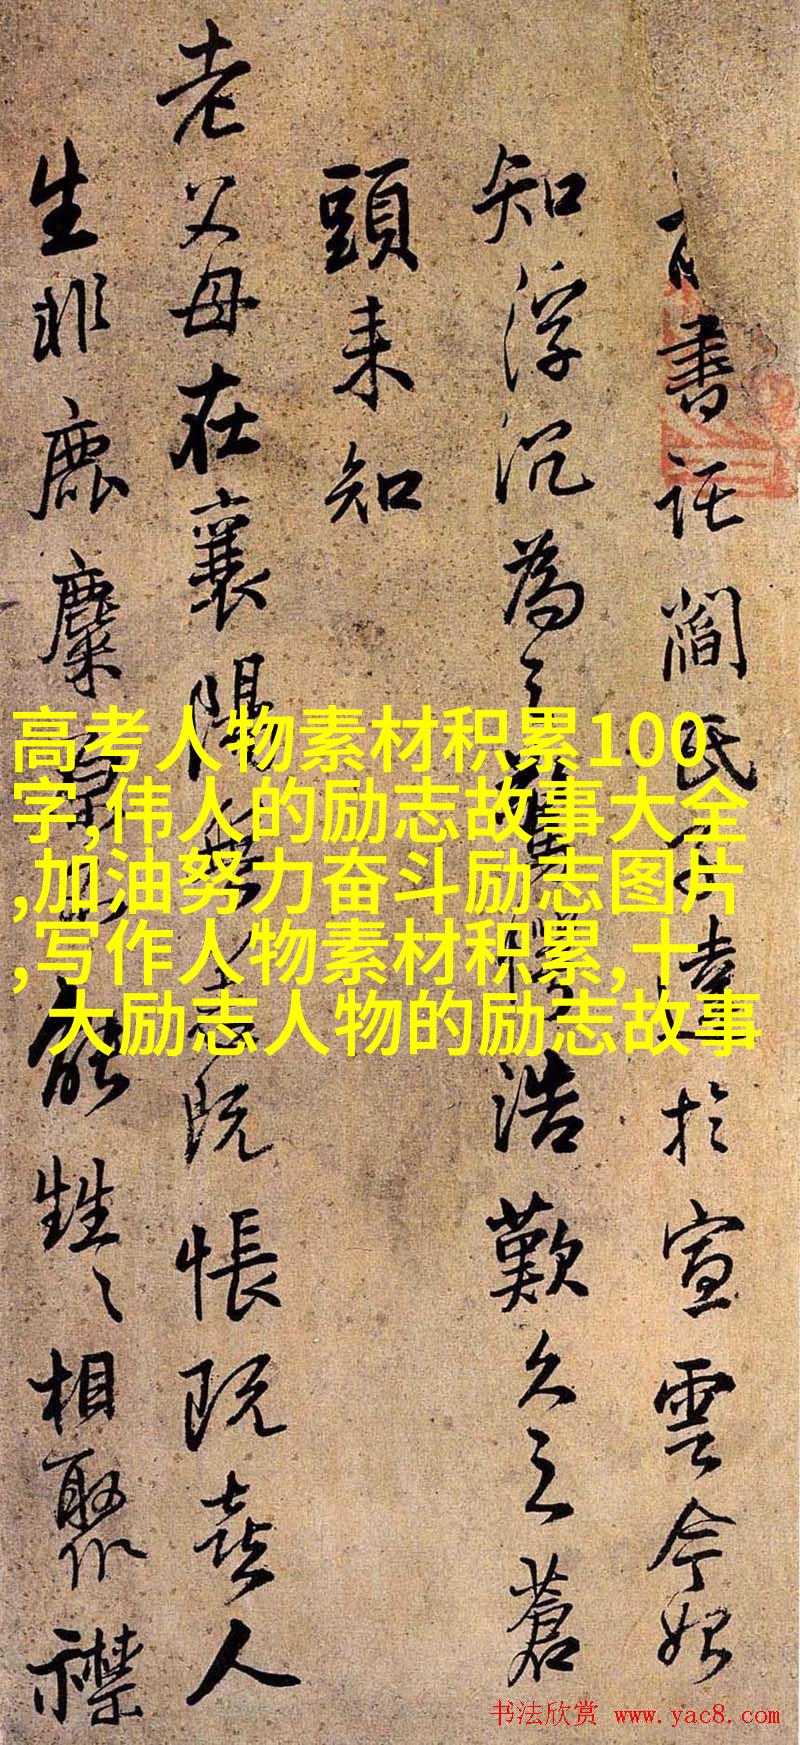 書託閻氏子達於宣雲今始
知浮沉為之驚愕浩歎久之蒼
頭来知
老父母在襄陽無恙既悵既喜人
生非鹿麋寧能甡〻相聚㣲襟
高考人物素材积累100
字,伟人的励志故事大全
,加油努力奋斗励志图片
,写作人物素材积累,十
大励志人物的励志故事
书法欣赏 www.yac8.com